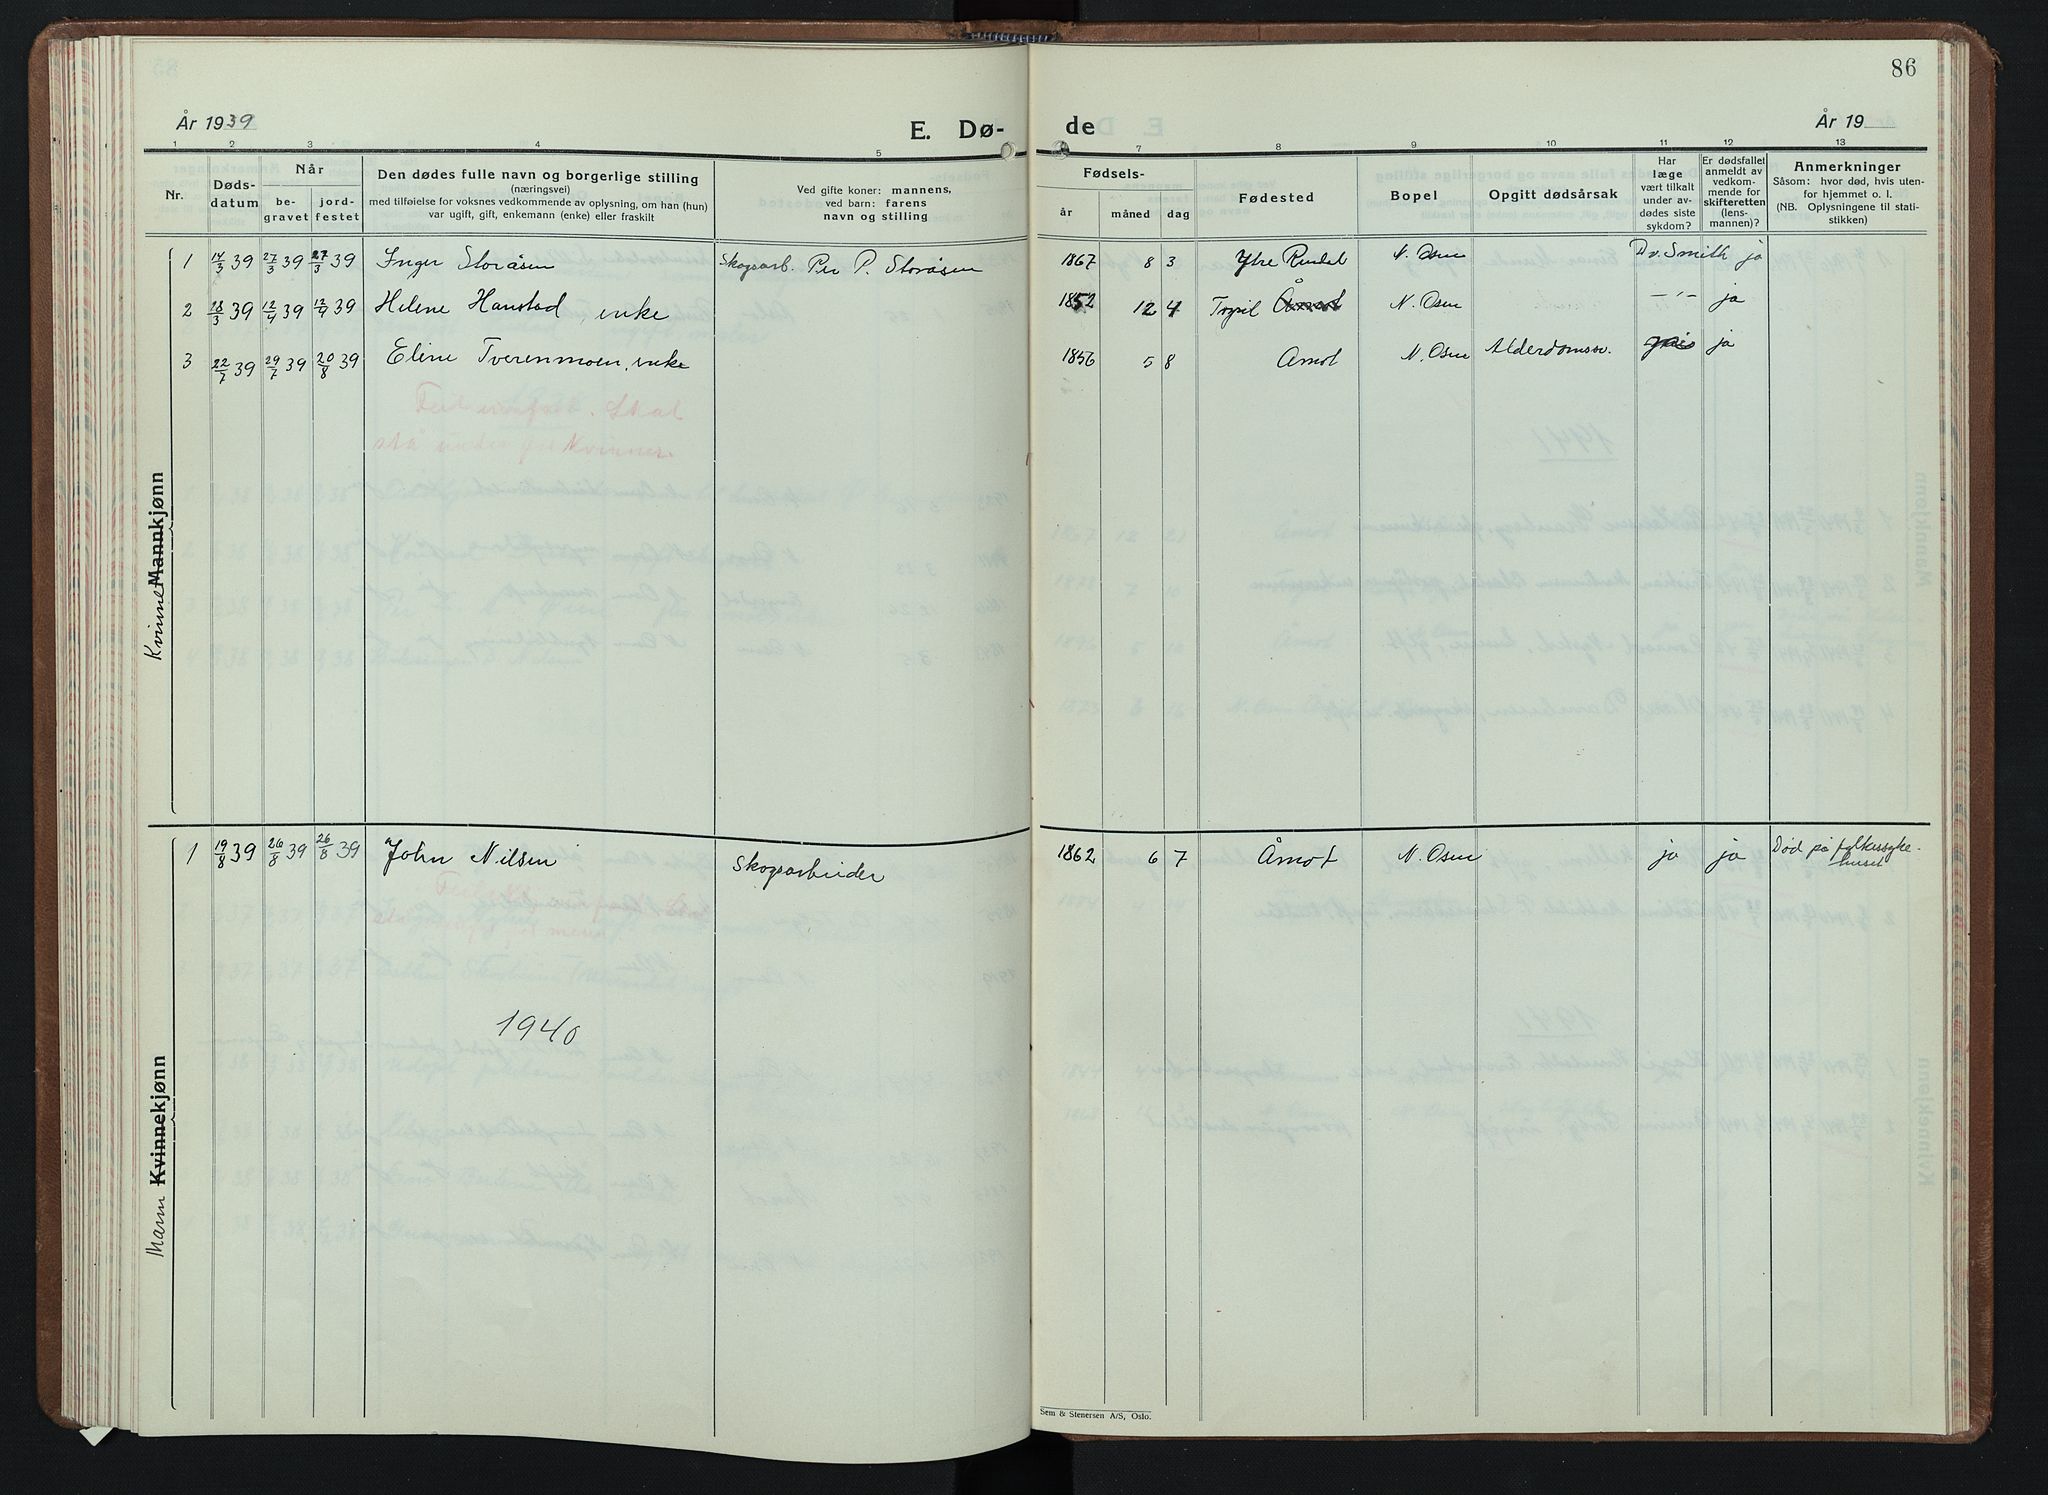 86
År 1939
E. Dø-
de
År 19
1 2 3 4 5 7 8 9 10 11 12 13
Nr.
Døds-
datum
Når
be-
gravet
jord-
festet
Den dødes fulle navn og borgerlige stilling
(næringsvei)
med tilføielse for voksnes vedkommende av oplysning, om han (hun)
var ugift, gift, enkemann (enke) eller fraskilt
Ved gifte koner: mannens,
ved barn: farens
navn og stilling
Fødsels-
år måned dag
Fødested
Bopel
Opgitt dødsårsak
Har
læge
vært tilkalt
under av-
dødes siste
sykdom?
Er dødsfallet
anmeldt av
vedkom-
mende for
skifteretten
(lens-
mannen)?
Anmerkninger
Såsom: hvor død, hvis uten-
for hjemmet o. l.
(NB. Oplysningene til stati-
stikken)
Kvinne Mannkjønn
1 14/3 39 27/3 39 27/3 39 Inger Storåsen Skogsarb. Per P. Storåsen 1867 8 3 Ytre Rendal N. Osen Dr. Smith ja
2 18/3 39 12/4 39 12/4 39 Helene Hanstad, enke 1852 12 4 Trysil Åmot N. Osen —"— ja
3 22/7 39 29/7 39 20/8 39 Eline Tverenmoen, enke 1856 5 8 Åmot N. Osen Alderdomssv. ja
Feil innført. Skal
stå under for Kvinner.
Mann Kvinnekjønn
1 19/8 39 26/8 39 26/8 39 John Nilsen Skogsarbeider 1862 6 7 Åmot N. Osen ja ja Død på folkessyke-
huset
1940
Sem & Stenersen A/S, Oslo.